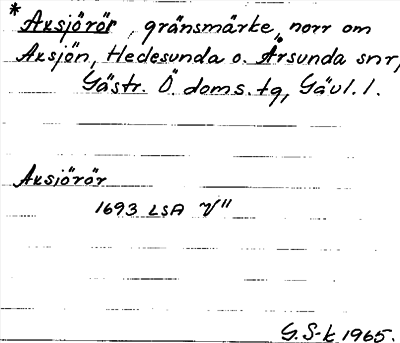 * Aksjörör, gränsmärke, norr om
Aksjön, Hedesunda o. Årsunda snr,
Gästr. Ö. doms. tg, Gävl. l.
Aksiörör
1693 LSA V"
G. S-k 1965.